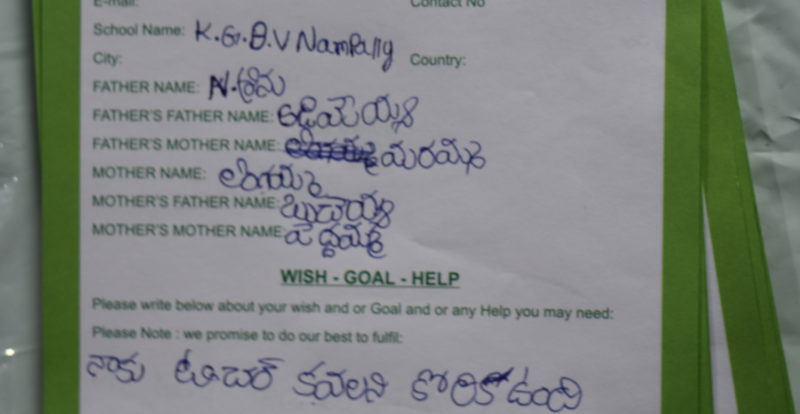 E-mail: Contact No
School Name: K.G.B.V Nampally
City: Country:
FATHER NAME: N.రాము
FATHER'S FATHER NAME:
FATHER'S MOTHER NAME: మరమ్మ
MOTHER NAME: లింగమ్మ
MOTHER'S FATHER NAME: బుచ్చయ్య
MOTHER'S MOTHER NAME: పెద్దమ్మ
WISH - GOAL - HELP
Please write below about your wish and or Goal and or any Help you may need:
Please Note : we promise to do our best to fulfil:
నాకు టీచర్ కవలని కోరిక ఉంది